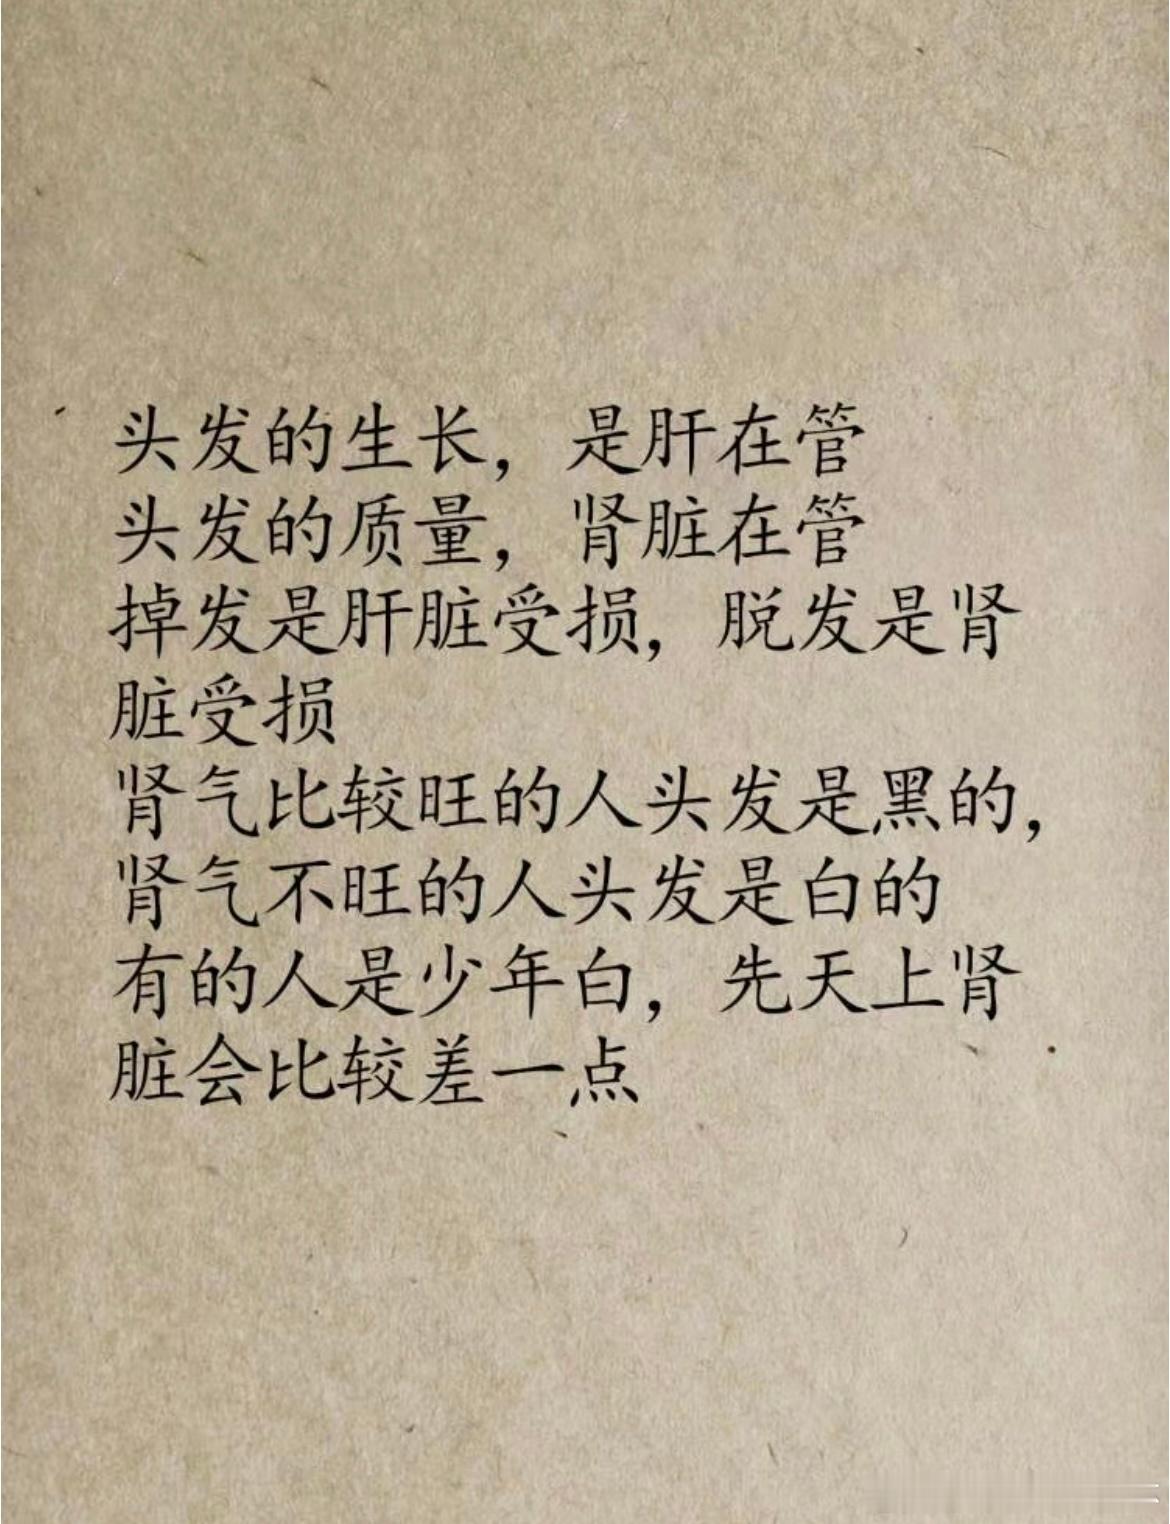 头发的生长，是肝在管
头发的质量，肾脏在管
掉发是肝脏受损，脱发是肾
脏受损
肾气比较旺的人头发是黑的，
肾气不旺的人头发是白的
有的人是少年白，先天上肾
脏会比较差一点